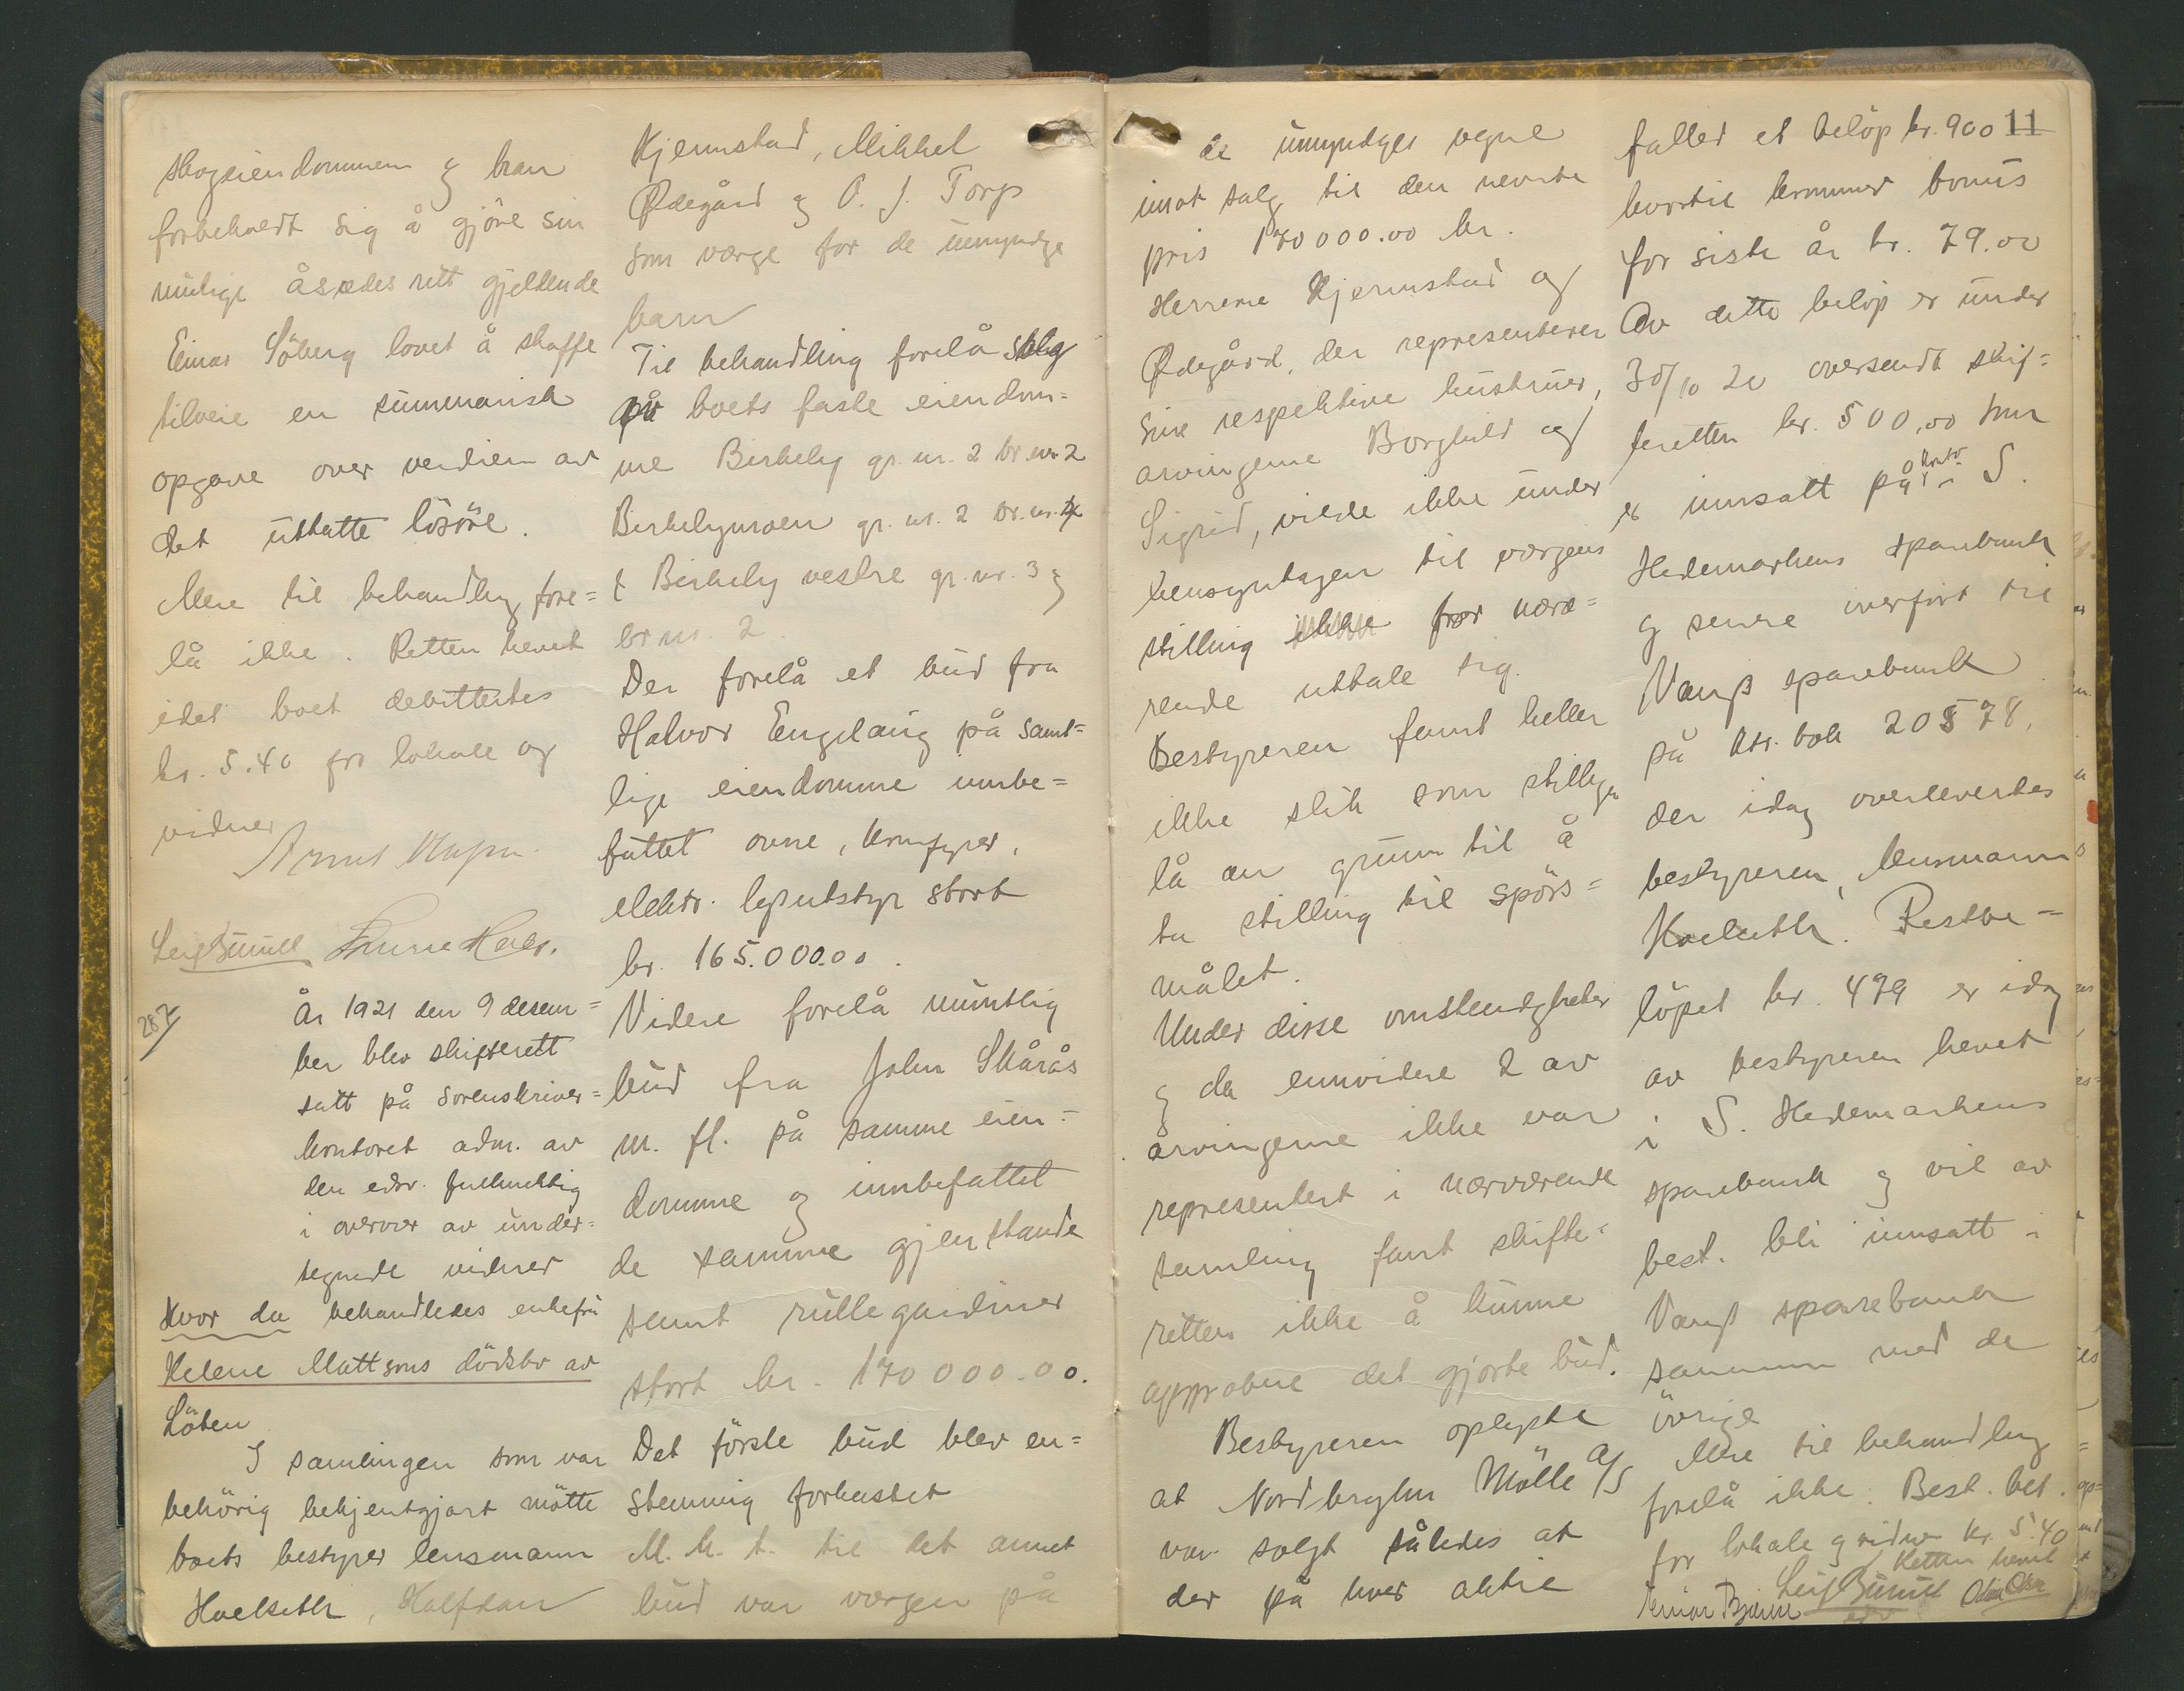 skogseiendommen og han
forbeholdt sig å gjöre sin
mulige åsædesrett gjeldende
Einar Söberg lovet å skaffe
tilveie en summarisk
opgave over verdien av
det uttatte lösöre.
Mere til behandling fore=
lå ikke. Retten hevet
idet boet debittertes
kr. 5.40 for lokale og
vidner
287
År 1921 den 9 desem=
ber blev skifterett
satt på sorenskriver=
kontoret adm. av
den edsv. fullmektig
i overvær av under=
tegnede vidner
Hvor da behandledes enkefru
Helene Mattsons dödsbo av
Löten
I samlingen som var
behörig bekjentgjort mötte
boets bestyrer lensmann
Hoelseth, Halfdan
Kjernstad, Mikkel
Ødegård og O. J. Torp
som værge for de umyndige
barn
Til behandling forelå salg
på boets faste eiendom=
me Birkely gr. nr. 2 br. nr. 2
Birkelymoen gr. nr. 2 br. nr. 4
& Birkely vestre gr. nr. 3 og
br nr. 2.
Der forelå et bud fra
Halvor Engelaug på samt=
lige eiendomme innbe=
fattet ovne, komfyrer,
elektr. lysutstyr stort
kr. 165.000.00.
Videre forelå muntlig
bud fra John Skårås
m. fl. på samme eien=
domme og innbefattet
de samme gjenstande
samt rullegardiner
stort kr. 170000.00.
Det förste bud blev en=
stemmig forkastet
M. h. t. til det annet
bud var værgen på
11
de umyndiges vegne
imot salg til den nevnte
pris 170000.00 kr.
Herrerne Kjernstad og
Ødegård, der representerer
sine respektive hustruer,
arvingerne Borghild og
Sigrid, vilde ikke under
hensyntagen til værgens
stilling ikke for nærvæ=
rende uttale sig.
Bestyreren fant heller
ikke slik som stillingen
lå an grunn til å
ta stilling til spörs=
målet.
Under disse omstendigheter
og da ennvidere 2 av
arvingerne ikke var
representert i nærværende
samling fant skifte=
retten ikke å kunne
approbere det gjorte bud.
Bestyreren oplyste
at Nordbryhn Mölle A/S
var solgt således at
der på hver aktie
falled et belöp kr. 900
hvortil kommer bonus
for siste år kr. 79.00
Av dette belöp er under
30/10 20 oversendt skif=
teretten kr. 500,00 som
er innsatt på konto i S.
Hedemarkens sparebank
og senere overfört til
Vangs sparebank
på ktr. bok 20578,
der idag overleveredes
bestyreren, lensmann
Hoelseth. Restbe=
löpet kr. 479 er idag
av bestyreren hevet
i S. Hedemarkens
sparebank og vil av
best. bli innsatt i
Vangs sparebank
sammen med de
övrige
Mere til behandling
forelå ikke. Best. bet.
for lokale og vidner kr. 5.40
Retten hevet